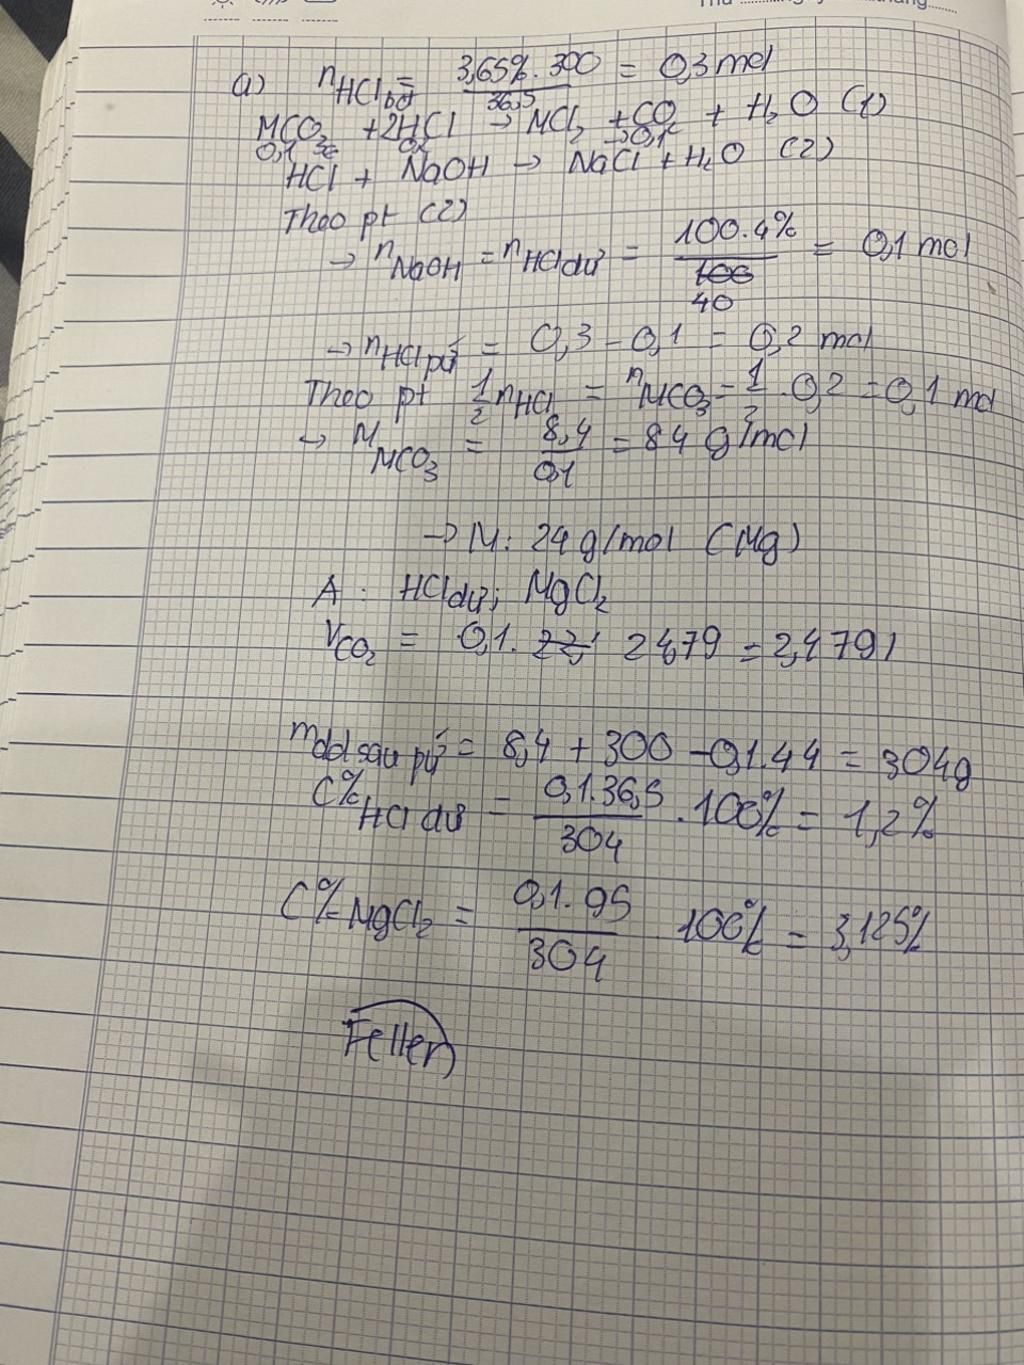 Thứ
a) nHClbđ = 3,65%.300/36,5 = 0,3 mol
MCO3 + 2HCl → MCl2 + CO2 + H2O (1)
0,1 0,2 →0,1
HCl + NaOH → NaCl + H2O (2)
Theo pt (2)
→ nNaOH = nHCl dư = 100.4%/40 = 0,1 mol
→ nHCl pứ = 0,3 - 0,1 = 0,2 mol
Theo pt 1/2 nHCl = nMCO3 = 1/2 . 0,2 = 0,1 mol
→ MMCO3 = 8,4/0,1 = 84 g/mol
→ M: 24 g/mol (Mg)
A : HCl dư; MgCl2
VCO2 = 0,1. 24,79 = 2,479 l
mdd sau pứ = 8,4 + 300 - 0,1.44 = 304g
C%HCl dư = 0,1.36,5/304 .100% = 1,2%
C%MgCl2 = 0,1.95/304 100% = 3,125%